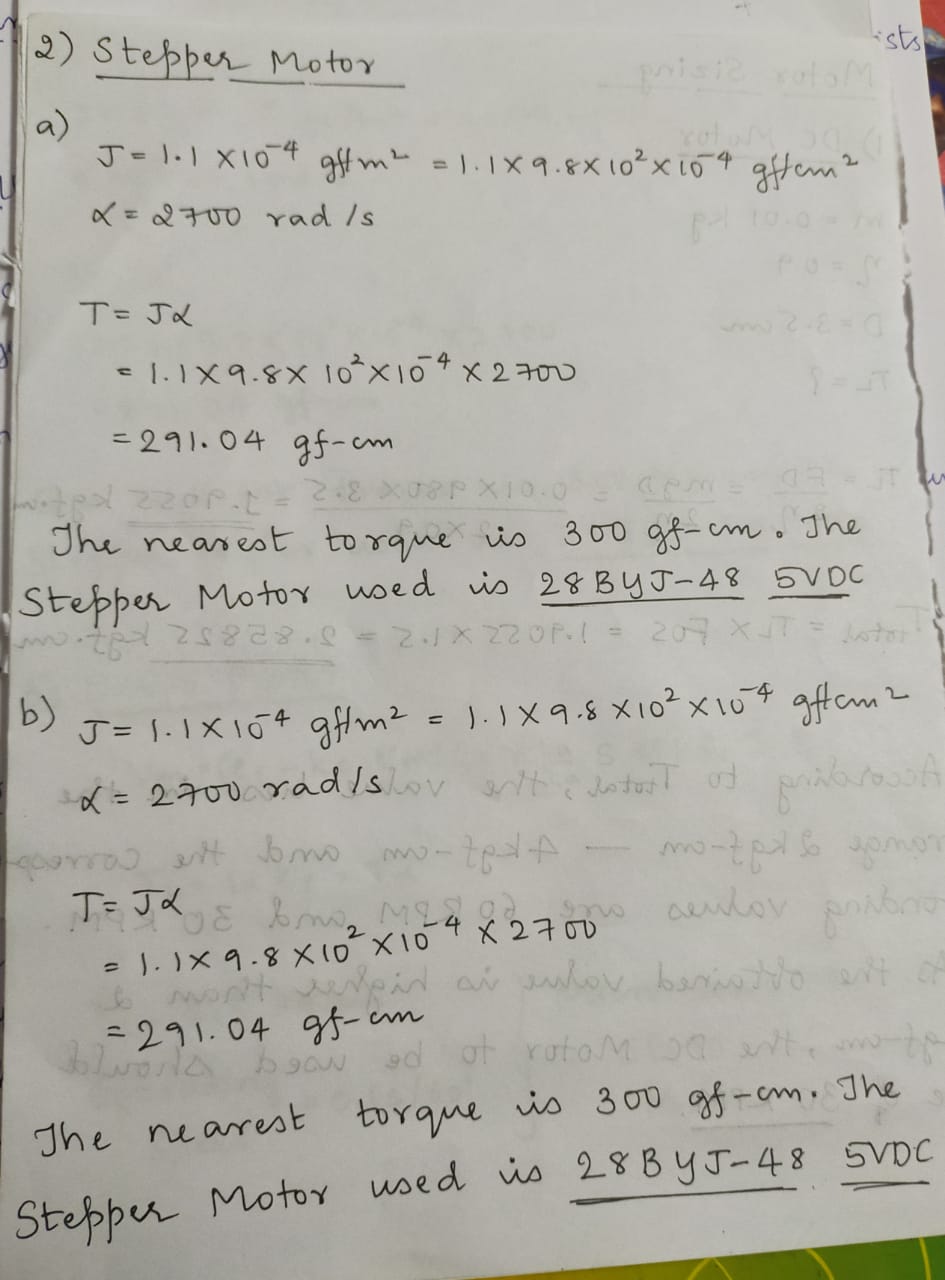 ists
2) Stepper Motor
a)
J = 1.1 × 10⁻⁴ gffm² = 1.1 × 9.8 × 10² × 10⁻⁴ gffcm²
α = 2700 rad/s
T = Jα
= 1.1 × 9.8 × 10² × 10⁻⁴ × 2700
= 291.04 gf-cm
The nearest torque is 300 gf-cm. The
Stepper Motor used is 28BYJ-48 5VDC
b)
J = 1.1 × 10⁻⁴ gffm² = 1.1 × 9.8 × 10² × 10⁻⁴ gffcm²
α = 2700 rad/s
T = Jα
= 1.1 × 9.8 × 10² × 10⁻⁴ × 2700
= 291.04 gf-cm
The nearest torque is 300 gf-cm. The
Stepper Motor used is 28BYJ-48 5VDC